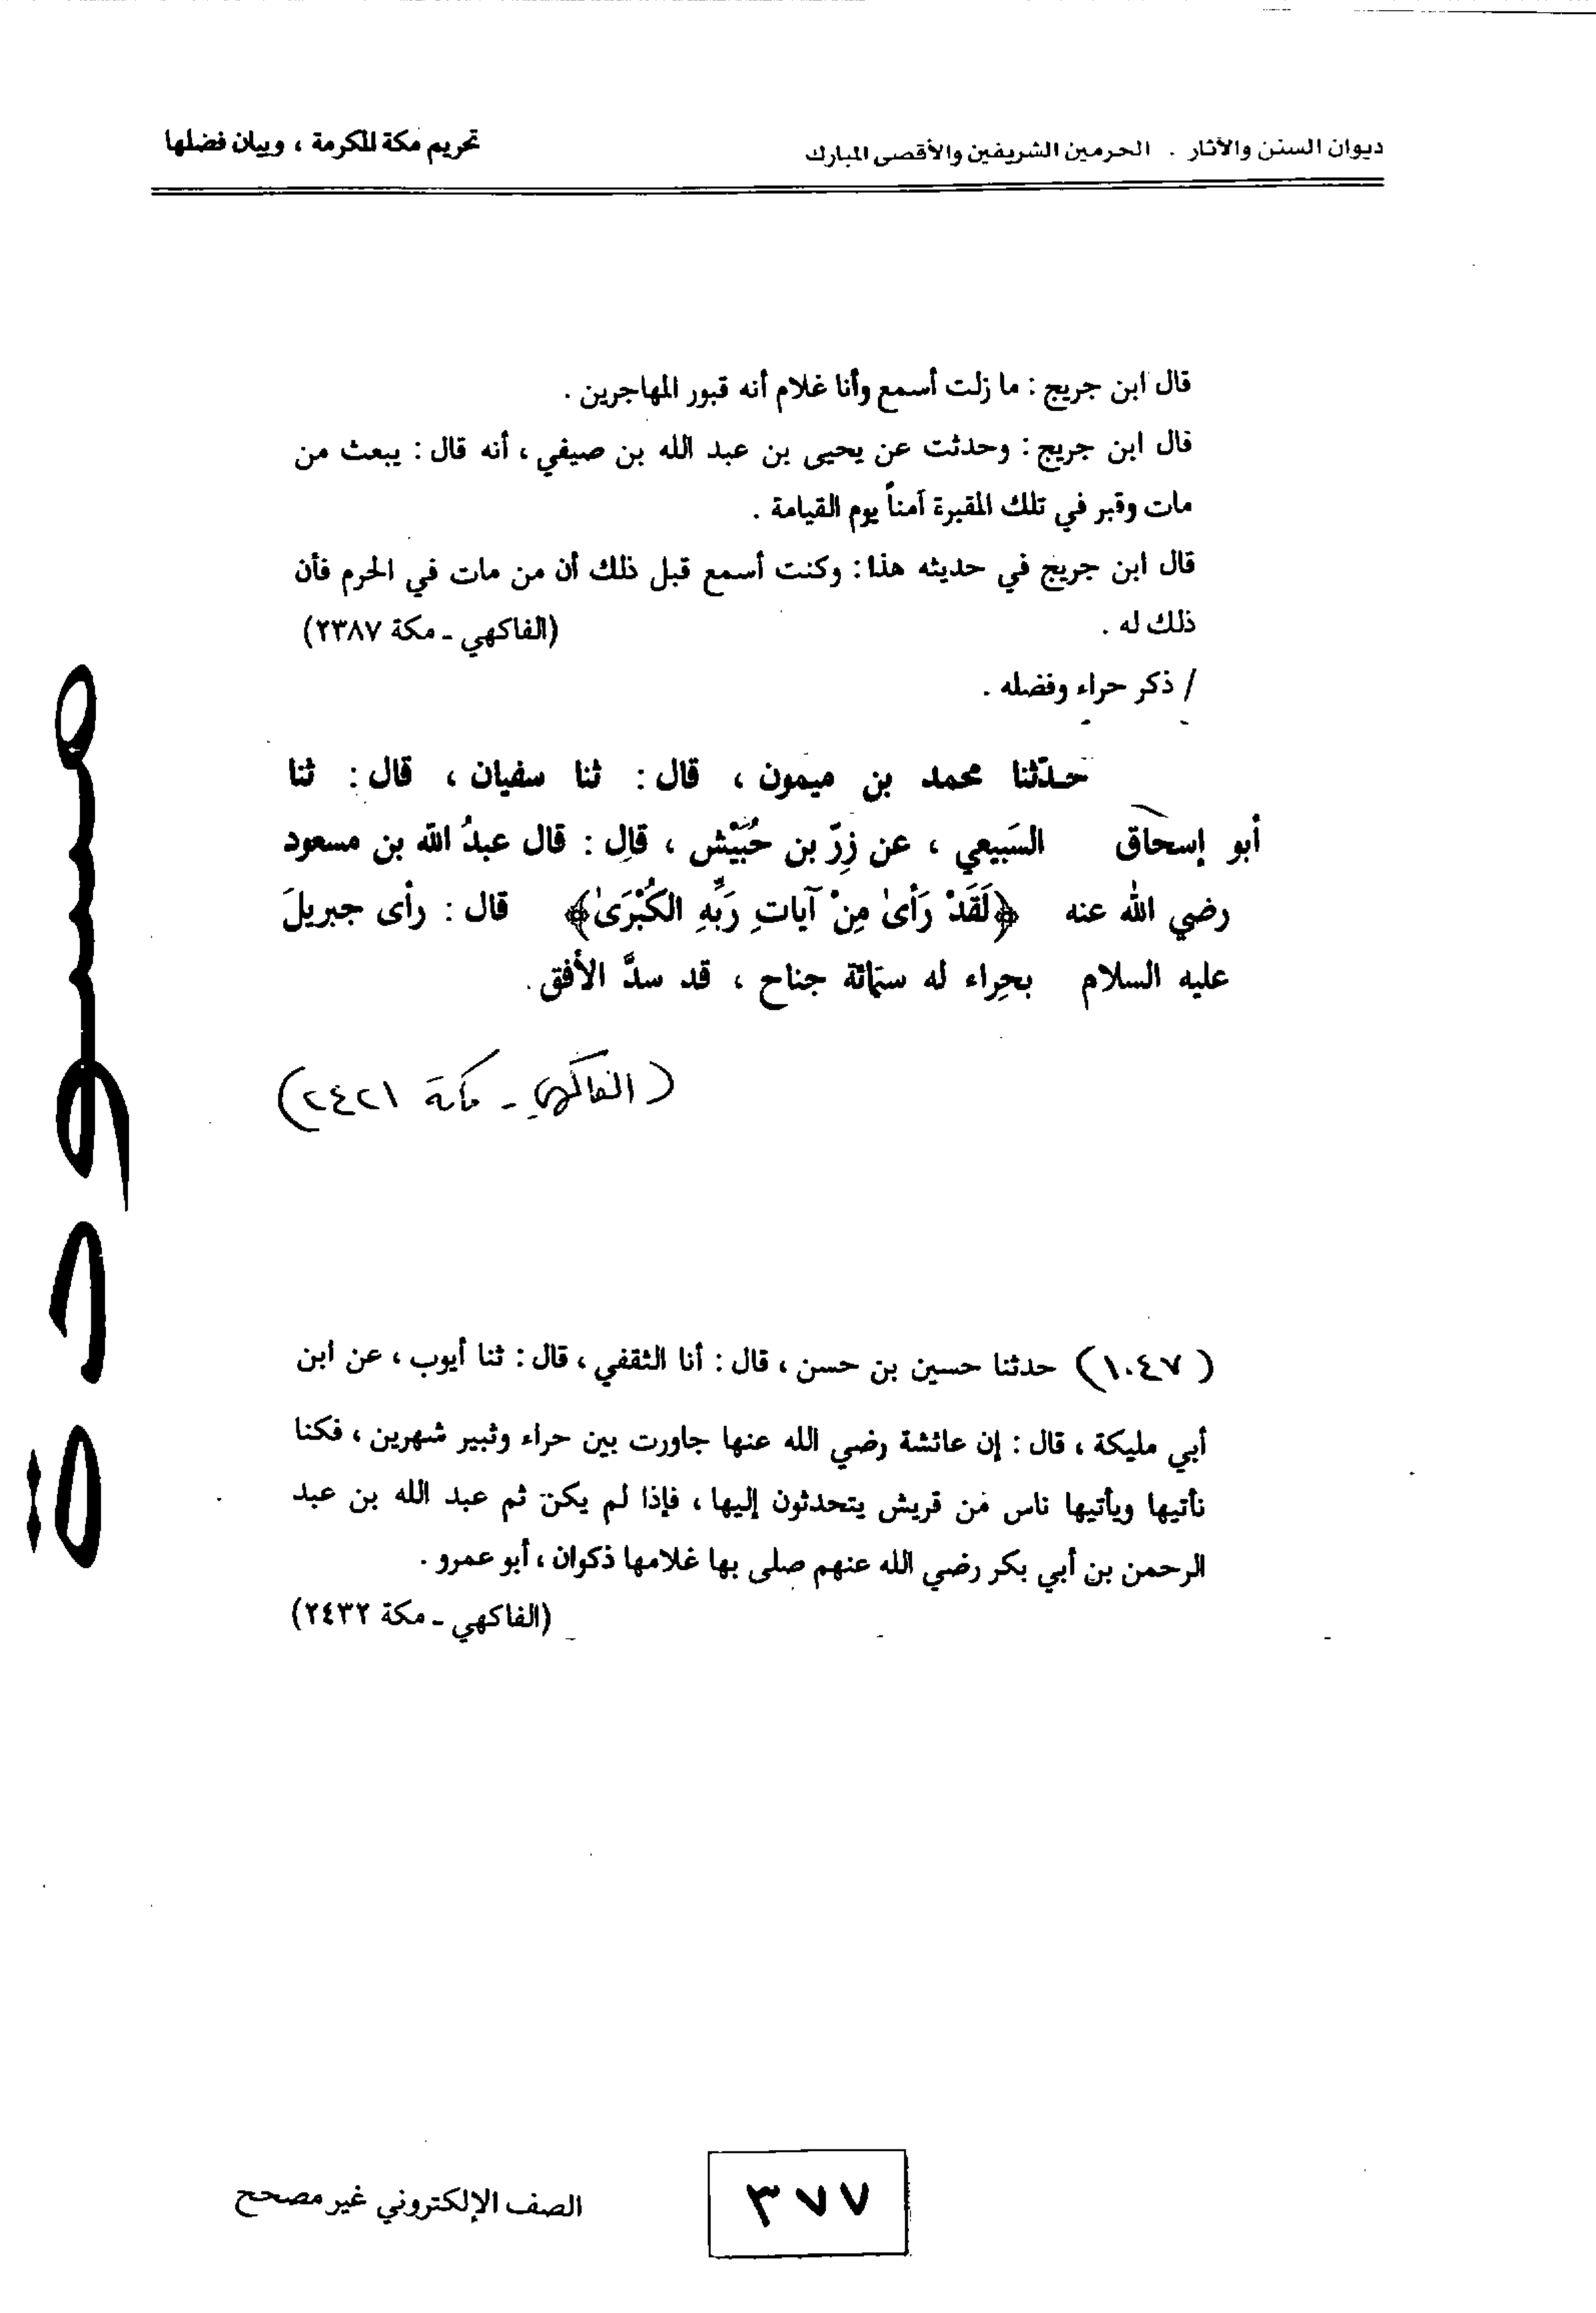 ديوان السنن والآثار . الحرمين الشريفين والأقصى المبارك
تحريم مكة المكرمة ، وبيان فضلها
قال ابن جريج : ما زلت أسمع وأنا غلام أنه قبور المهاجرين .
قال ابن جريج : وحدثت عن يحيى بن عبد الله بن صيفي ، أنه قال : يبعث من
مات وقبر في تلك المقبرة آمناً يوم القيامة .
قال ابن جريج في حديثه هذا : وكنت أسمع قبل ذلك أن من مات في الحرم فأن
ذلك له .
(الفاكهي ـ مكة ٢٣٨٧)
/ ذكر حراء وفضله .
حدّثنا محمد بن ميمون ، قال : ثنا سفيان ، قال : ثنا
أبو إسحاق السَبيعي ، عن زِرّ بن حُبَيْش ، قال : قال عبدُ الله بن مسعود
رضي الله عنه ﴿لَقَدْ رَأىٰ مِنْ آيَاتِ رَبِّهِ الكُبْرَىٰ﴾ قال : رأى جبريلَ
عليه السلام بحِراء له ستمائة جناح ، قد سدَّ الأفق .
(الفاكهي ـ مكة ٢٤٢١)
(١٠٤٧) حدثنا حسين بن حسن ، قال : أنا الثقفي ، قال : ثنا أيوب ، عن ابن
أبي مليكة ، قال : إن عائشة رضي الله عنها جاورت بين حراء وثبير شهرين ، فكنا
نأتيها ويأتيها ناس من قريش يتحدثون إليها ، فإذا لم يكن ثم عبد الله بن عبد
الرحمن بن أبي بكر رضي الله عنهم صلى بها غلامها ذكوان ، أبو عمرو .
(الفاكهي ـ مكة ٢٤٣٢)
مسودة
٣٧٧
الصف الإلكتروني غير مصحح